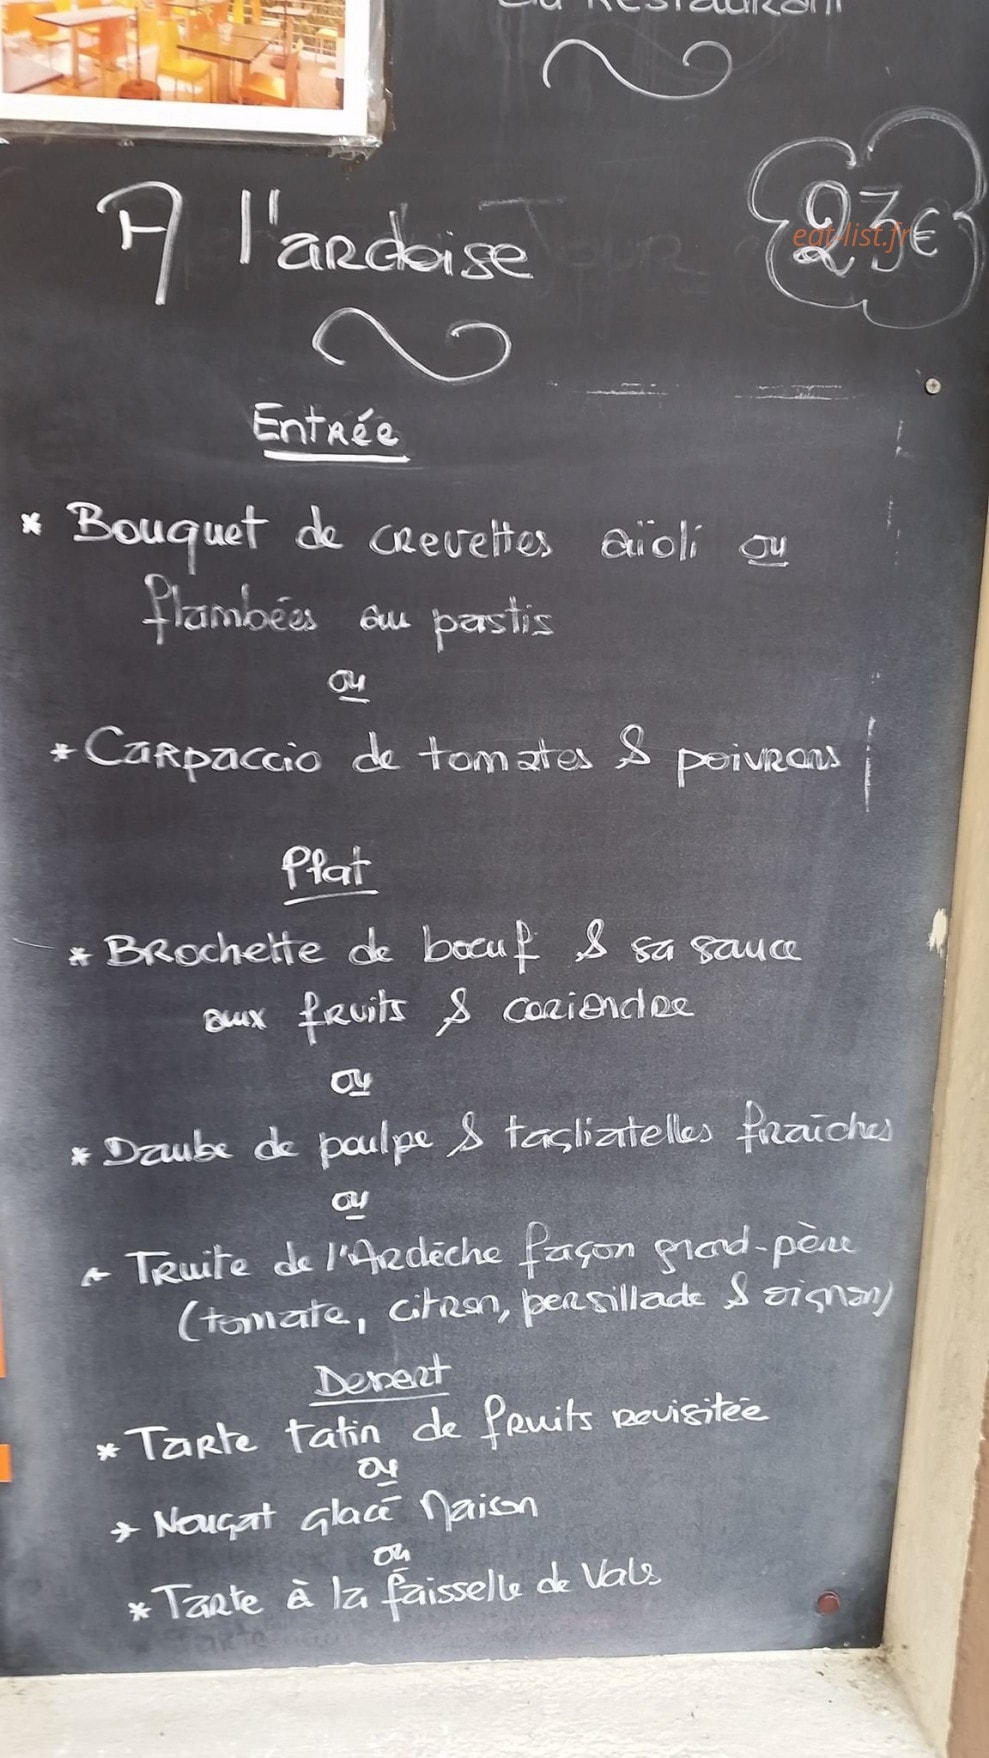 du Restaurant
A l'ardoise
23€
eat-list.fr
Entrée
* Bouquet de crevettes aïoli ou
flambées au pastis
ou
* Carpaccio de tomates & poivrons
Plat
* Brochette de bœuf & sa sauce
aux fruits & coriandre
ou
* Daube de poulpe & tagliatelles fraîches
ou
* Truite de l'Ardèche façon grand-père
(tomate, citron, persillade & oignon)
Dessert
* Tarte tatin de fruits revisitée
ou
* Nougat glacé Maison
ou
* Tarte à la faisselle de Vals